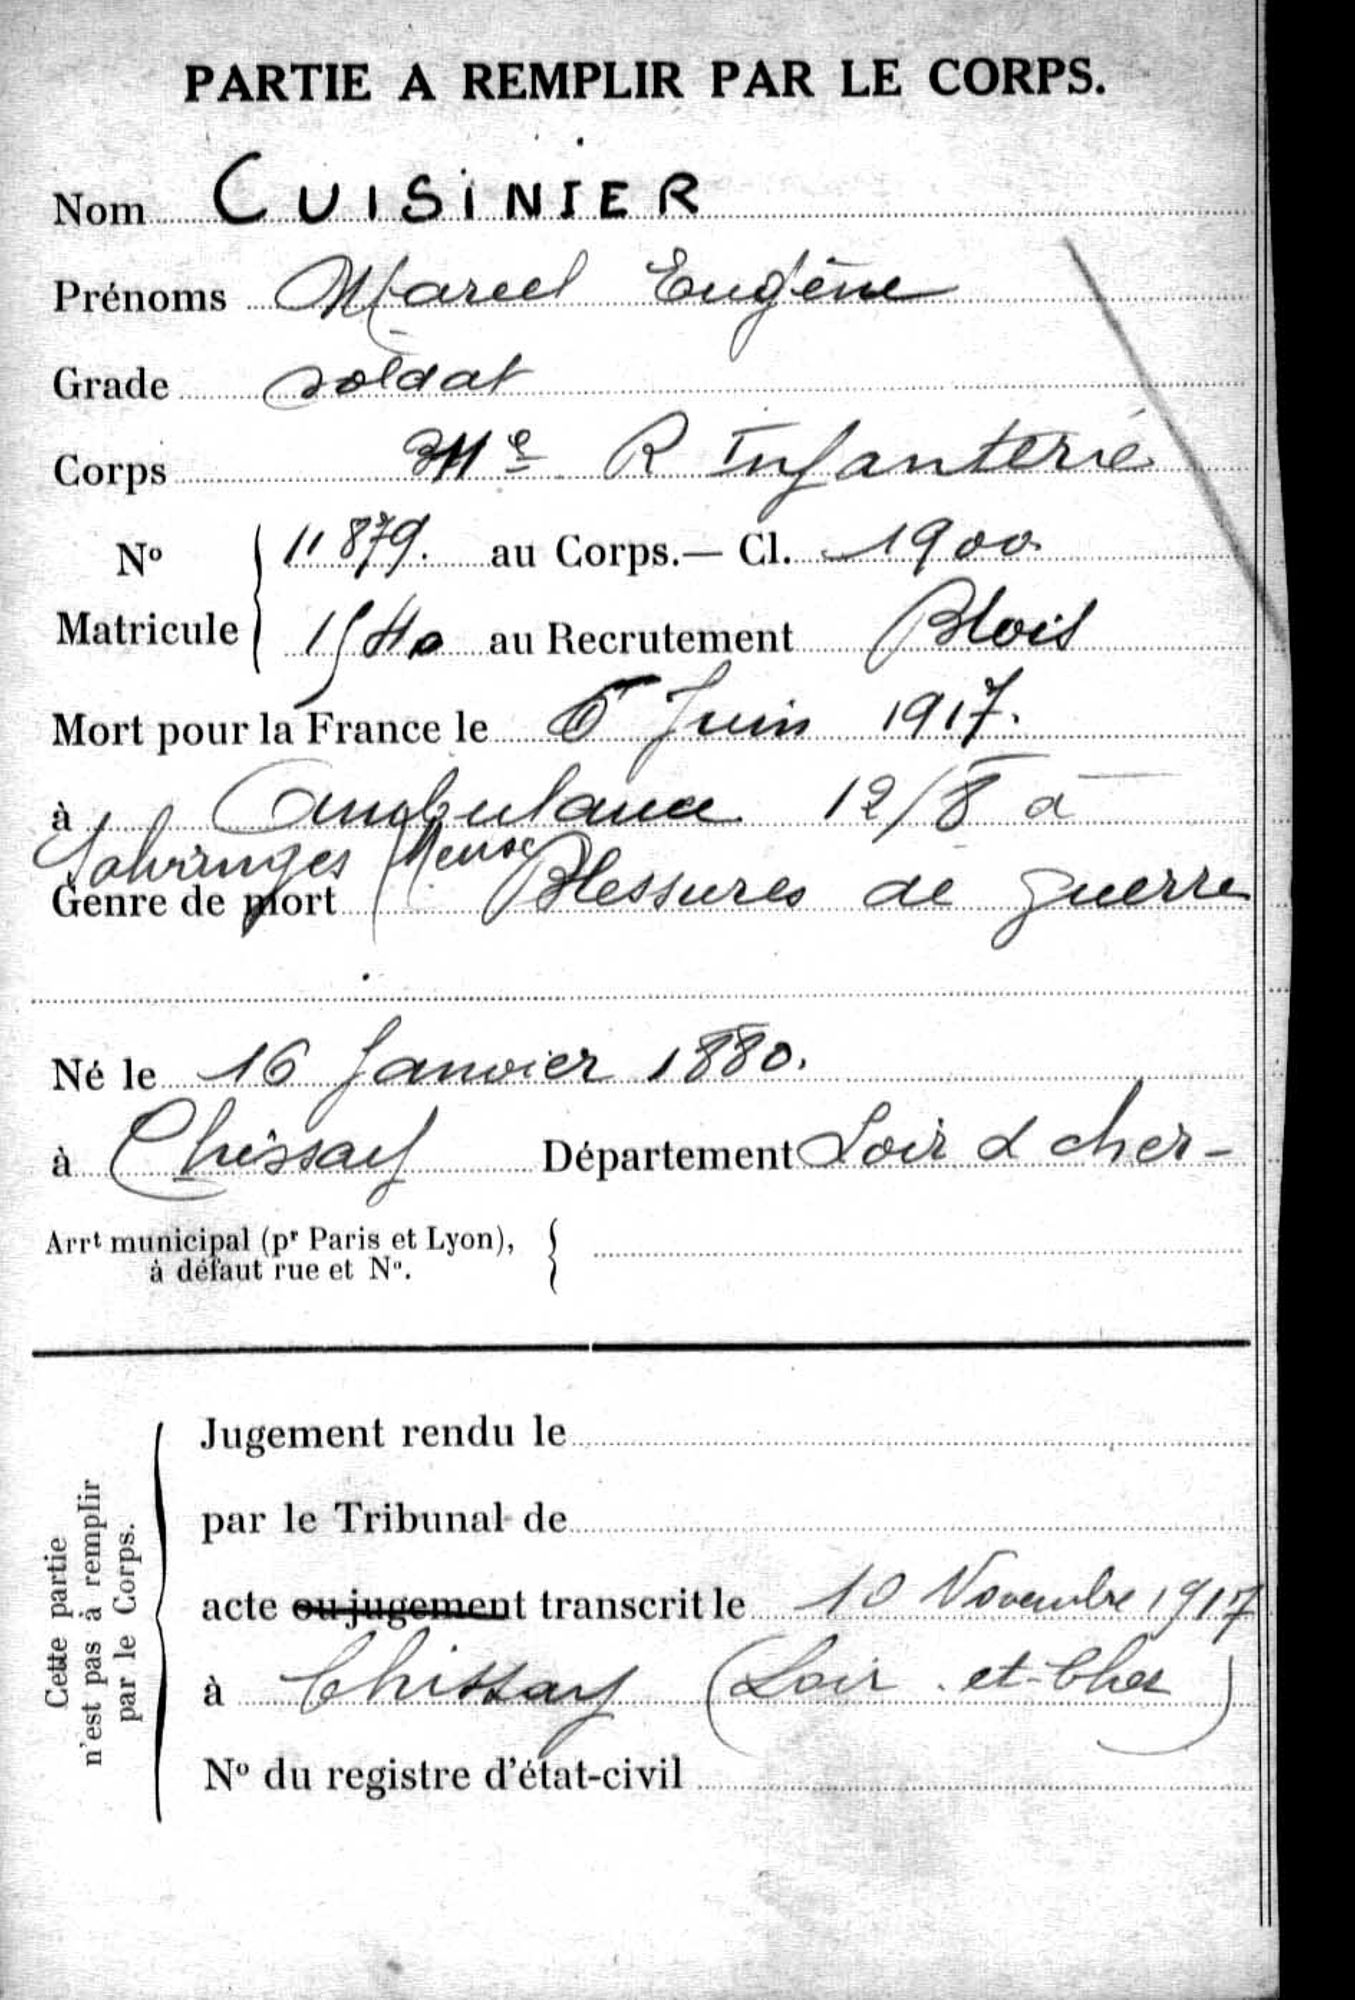 PARTIE A REMPLIR PAR LE CORPS.
Nom CUISINIER
Prénoms Marcel Eugène
Grade soldat
Corps R Infanterie
No 11879. au Corps.— Cl. 1900
Matricule au Recrutement Blois
Mort pour la France le 6 Juin 1917.
à ambulance 12/8 à
(Meuse
Genre de mort Blessures de guerre
Né le 16 Janvier 1880.
à Chissay Département Loir & cher -
Arrt municipal (pr Paris et Lyon),
à défaut rue et No.
Jugement rendu le
par le Tribunal de
acte ou jugement transcrit le 10 Novembre 1917
à Chissay (Loir-et-Cher)
No du registre d'état-civil
Cette partie
n'est pas à remplir
par le Corps.